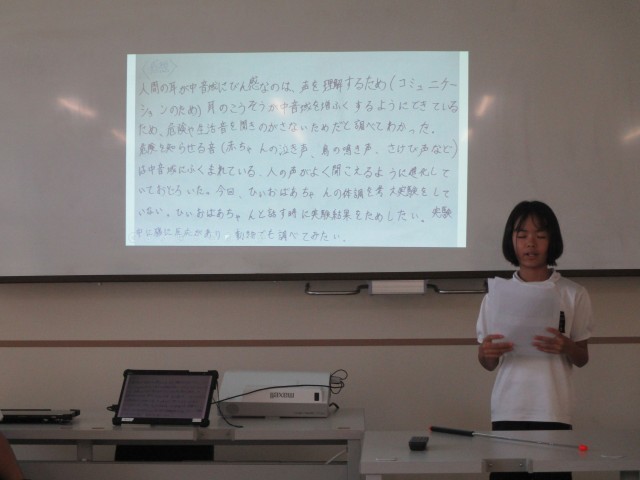 <感想>
人間の耳が中音域にびん感なのは、声を理解するため(コミュニケー
ションのため)耳のこうぞうが中音域を増ふくするようにできている
ため、危険や生活音を聞きのがさないためだと調べてわかった。
危険を知らせる音(赤ちゃんの泣き声、鳥の鳴き声、さけび声など)
は中音域にふくまれている、人の声がよく聞こえるように進化して
いておどろいた。今回、ひいおばあちゃんの体調を考え実験をして
いない。ひいおばあちゃんと話す時に実験結果をためしたい。実験
中に猫に反応があり、動物でも調べてみたい。
maxell